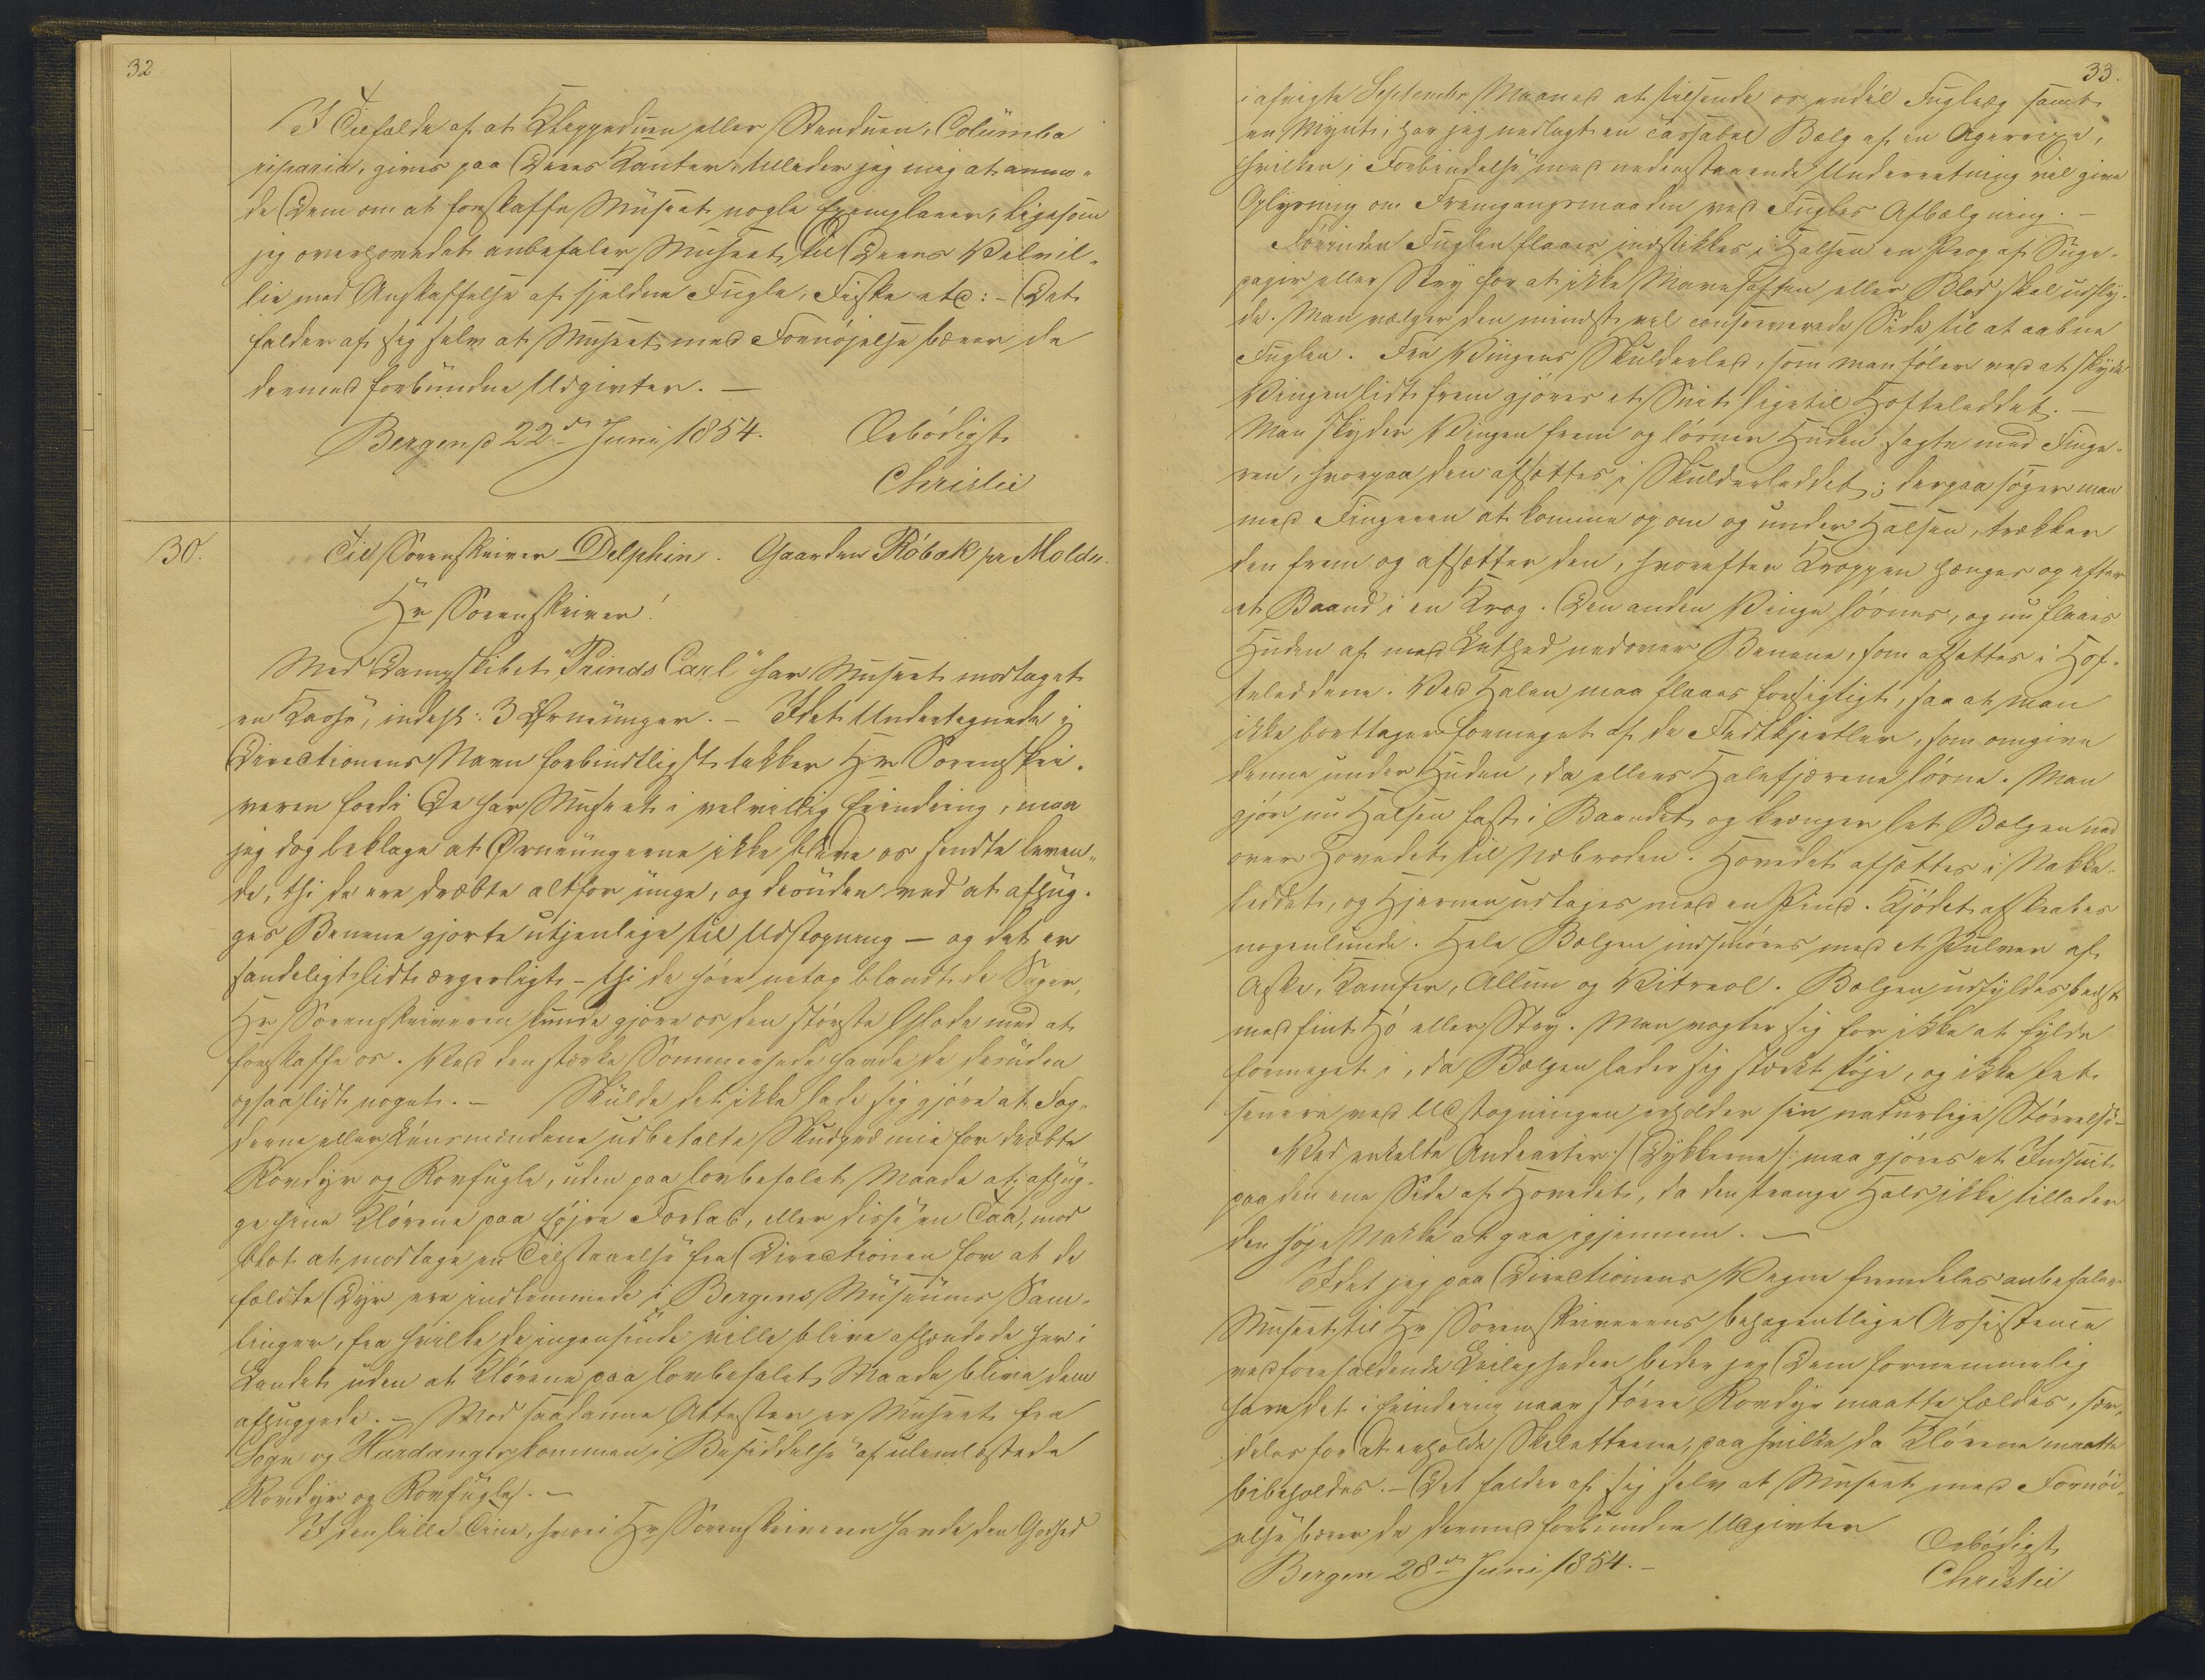 32
I Tilfælde af at Klippeduen eller Stenduen, Columba
riparia, gives paa Deres Kanter, tillader jeg mig at anmo-
de Dem om at forskaffe Museet nogle Exemplarer, ligesom
jeg overhovedet anbefaler Museet til Deres Velvil-
lie med Anskaffelse af sjeldne Fugle, Fiske etc: – Det
falder af sig selv at Museet med Fornøjelse bærer de
dermed forbundne Udgivter. –
Bergen d 22de Juni 1854. Ærbødigst
Christie
30. Til Sorenskriver Delphin. Gaarden Róbak pr Molde.
Hr Sorenskriver!
Med Dampskibet "Prinds Carl" har Museet modtaget
en Kasse, indeh: 3 Ørneünger. – Idet Undertegnede i
Directionens Navn forbindtligst takker Hr Sorenskri-
veren fordi De har Museet i velvillig Erindring, maa
jeg dog beklage at Ørneüngerne ikke bleve os sendte leven-
de, thi de ere dræbte altfor ünge, og desüden ved at afhüg-
ges Benene gjorte utjenlige til Udstopning – og det er
sandeligt lidt ærgerligt – thi de høre netop blandt de Sager,
Hr Sorenskriveren kunde gjøre os den største Glæde med at
forskaffe os. Ved den stærke Sommerhede havde de desüden
ogsaa lidt noget. – Skülde det ikke lade sig gjøre at Fog-
derne eller Lénsmændene udbetalte Skudpræmie for dræbte
Rovdyr og Rovfugle, uden paa lovbefalet Maade at afhüg-
ge hine Klórene paa Forlab, eller disse en Taa, mod
blot at modtage en Tilstaaelse fra Directionen for at de
fældte Dyr ere indlemmede i Bergens Müseüms Sam-
linger, fra hvilke de ingensinde ville blive afhændede her i
Landet uden at Klórene paa lovbefalet Maade blive dem
afhuggede. – Mod saadanne Attester er Museet fra
Sogn og Hardanger kommen i Besiddelse af ulemlæstede
Rovdyr og Rovfugle. –
I den lille Tine, hvori Hr Sorenskriveren havde den Godhed
33.
i afvigte September Maaned at tilsende os endel Fugleæg samt
en Mynt, har jeg nedlagt en Bælg af en Agerrixe,
hvilken, i Forbindelse med nedenstaaende Underretning vil give
Oplysning om Fremgangsmaaden ved Fugles Afbælgning. –
Fórinden Fuglen flaaes indstikkes i Halsen en Prop af Suge-
papir eller Stry for at ikke Mavesaften eller Blod skal udfly-
de. Man vælger den mindst vel conserverede Side til at aabne
Fuglen. Fra Vingens Skulderled, som man føler ved at skyde
Vingen lidt frem gjøres et Snit ligetil Hofteleddet. –
Man skyder Vingen frem og lósner Huden sagte med Finge-
ren, hvorpaa den afsættes i Skulderleddet; derpaa søger man
med Fingeren at komme op om og under Halsen, trækker
den frem og afsætter den, hvorefter Kroppen hænges op efter
et Baand i en Krog. Den anden Vinge lósnes, og nu flaaes
Huden af med Lethed nedover Benene, som afsættes i Hof-
teleddene. Ved Halen maa flaaes forsigtigt, saa at man
ikke borttager formeget af de Fedtkjertler, som omgive
denne under Huden, da ellers Halefjærene lósne. Man
gjør nu Halsen fast i Baandet og krænger let Bælgen ned
over Hovedet til Næbroden. Hovedet afsættes i Nakke-
leddet, og Hjernen udtages med en Pind. Kjødet afskrabes
nogenlunde. Hele Bælgen indsmóres med et Pulver af
Aske, Kamfer, Allun og Vitreol. Bælgen udfyldes bedst
med fint Hó eller Stry. Man vogter sig for ikke at fylde
formeget i, da Bælgen lader sig stærkt töje, og ikke let
senere ved Udstopningen erholder sin naturlige Størrelse –
Ved enkelte Andearter /: Dykkerne :/ maa gjøres et Indsnit
paa den ene Side af Hovedet, da den trange Hals ikke tillader
den höje Nakke at gaa igjennem. –
Idet jeg paa Directionens Vegne fremdeles anbefaler
Museet til Hr Sorenskriverens behagentlige Assistence
ved forefaldende Leilegheder beder jeg Dem fornemmelig
have det i Erindring naar større Rovdyr maatte fældes, sær-
deles for at erholde Skeletterne, paa hvilke da Klórene maatte
bibeholdes. – Det falder af sig selv at Museet med Fornøi-
else bærer de dermed forbundne Udgivter
Ærbødigst
Bergen 28de Juni 1854. –
Christie